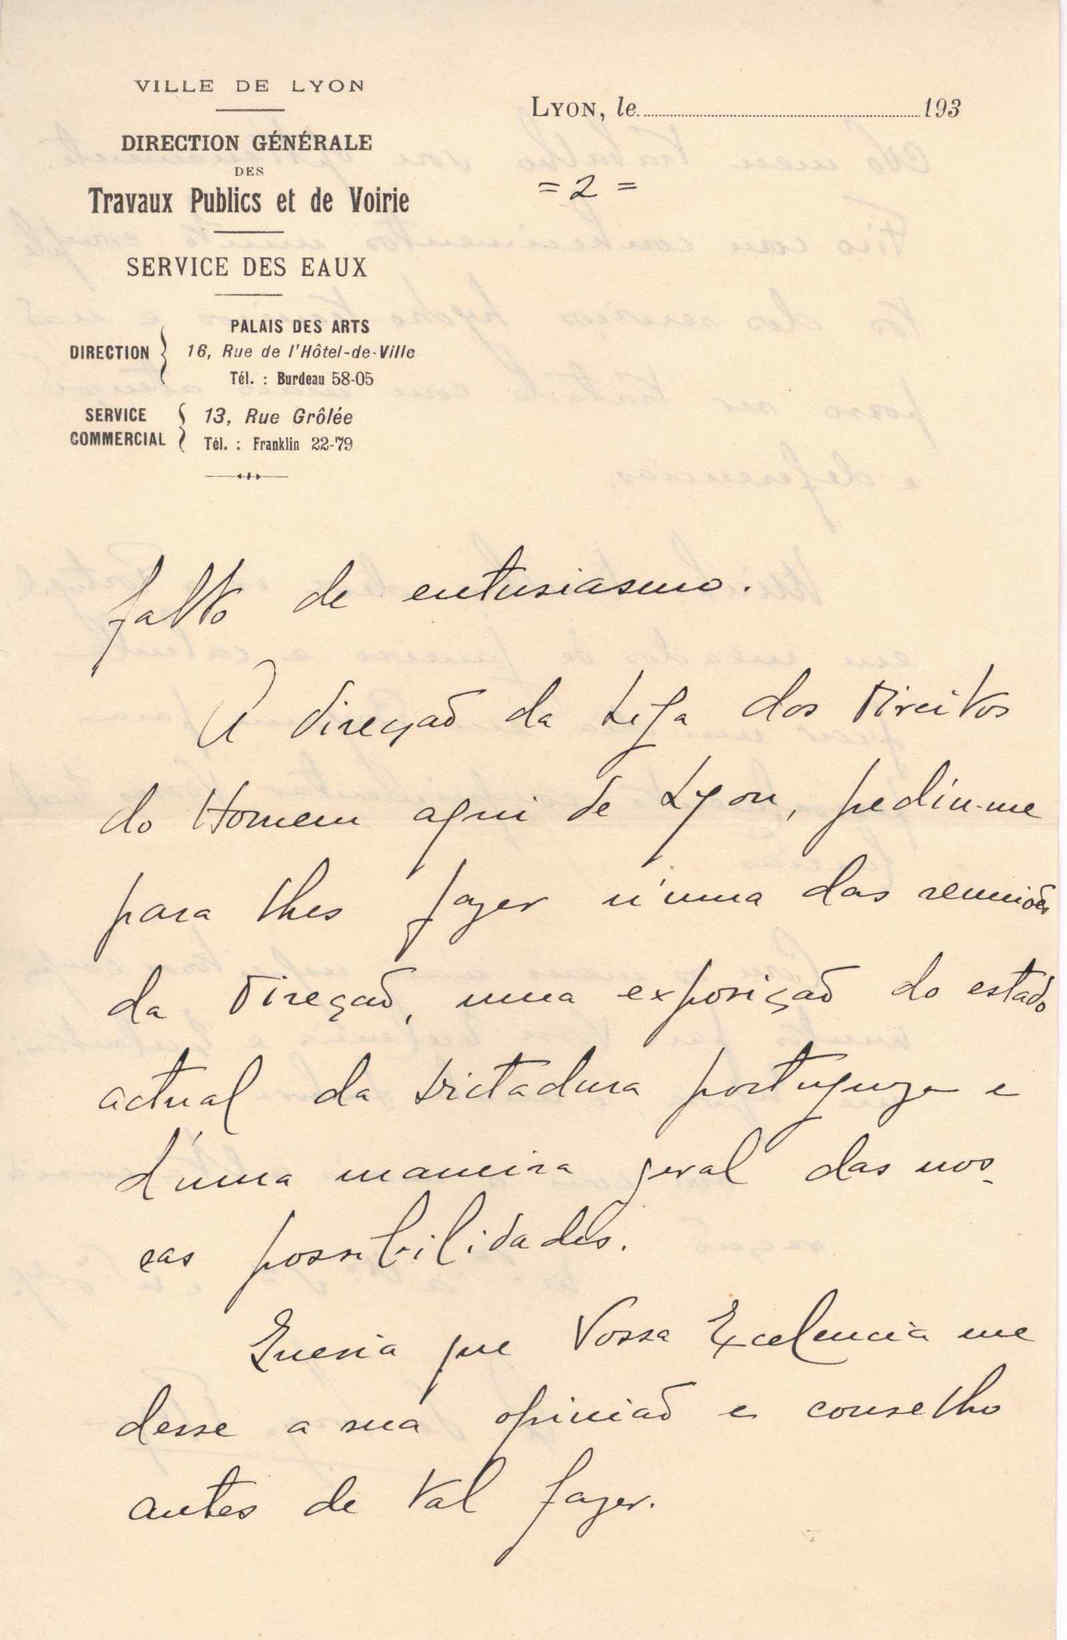 VILLE DE LYON
DIRECTION GÉNÉRALE
DES
Travaux Publics et de Voirie
SERVICE DES EAUX
DIRECTION { PALAIS DES ARTS
16, Rue de l'Hôtel-de-Ville
Tél. : Burdeau 58-05
SERVICE COMMERCIAL { 13, Rue Grôlée
Tél. : Franklin 22-79
LYON, le 193
= 2 =
falto de entusiasmo.
A direçaõ da Liga dos Direitos
do Homem aqui de Lyon, pediu-me
para lhes fazer n'uma das reuniões
da Direçaõ, uma exposiçaõ do estado
actual da Dictadura portugueza e
d'uma maneira geral das nos-
sas possibilidades.
Queria que Vossa Excelencia me
desse a sua opiniaõ e conselho
antes de tal fazer.